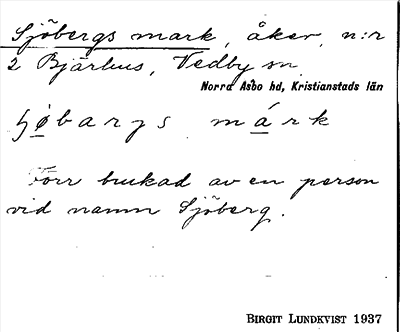 Sjöbergs mark, åker, n:r
2 Bjärhus, Vedby sn,
Norra Asbo hd, Kristianstads län
ʃǿbarʒs márk
Förr brukad av en person
vid namn Sjöberg.
BIRGIT LUNDKVIST 1937